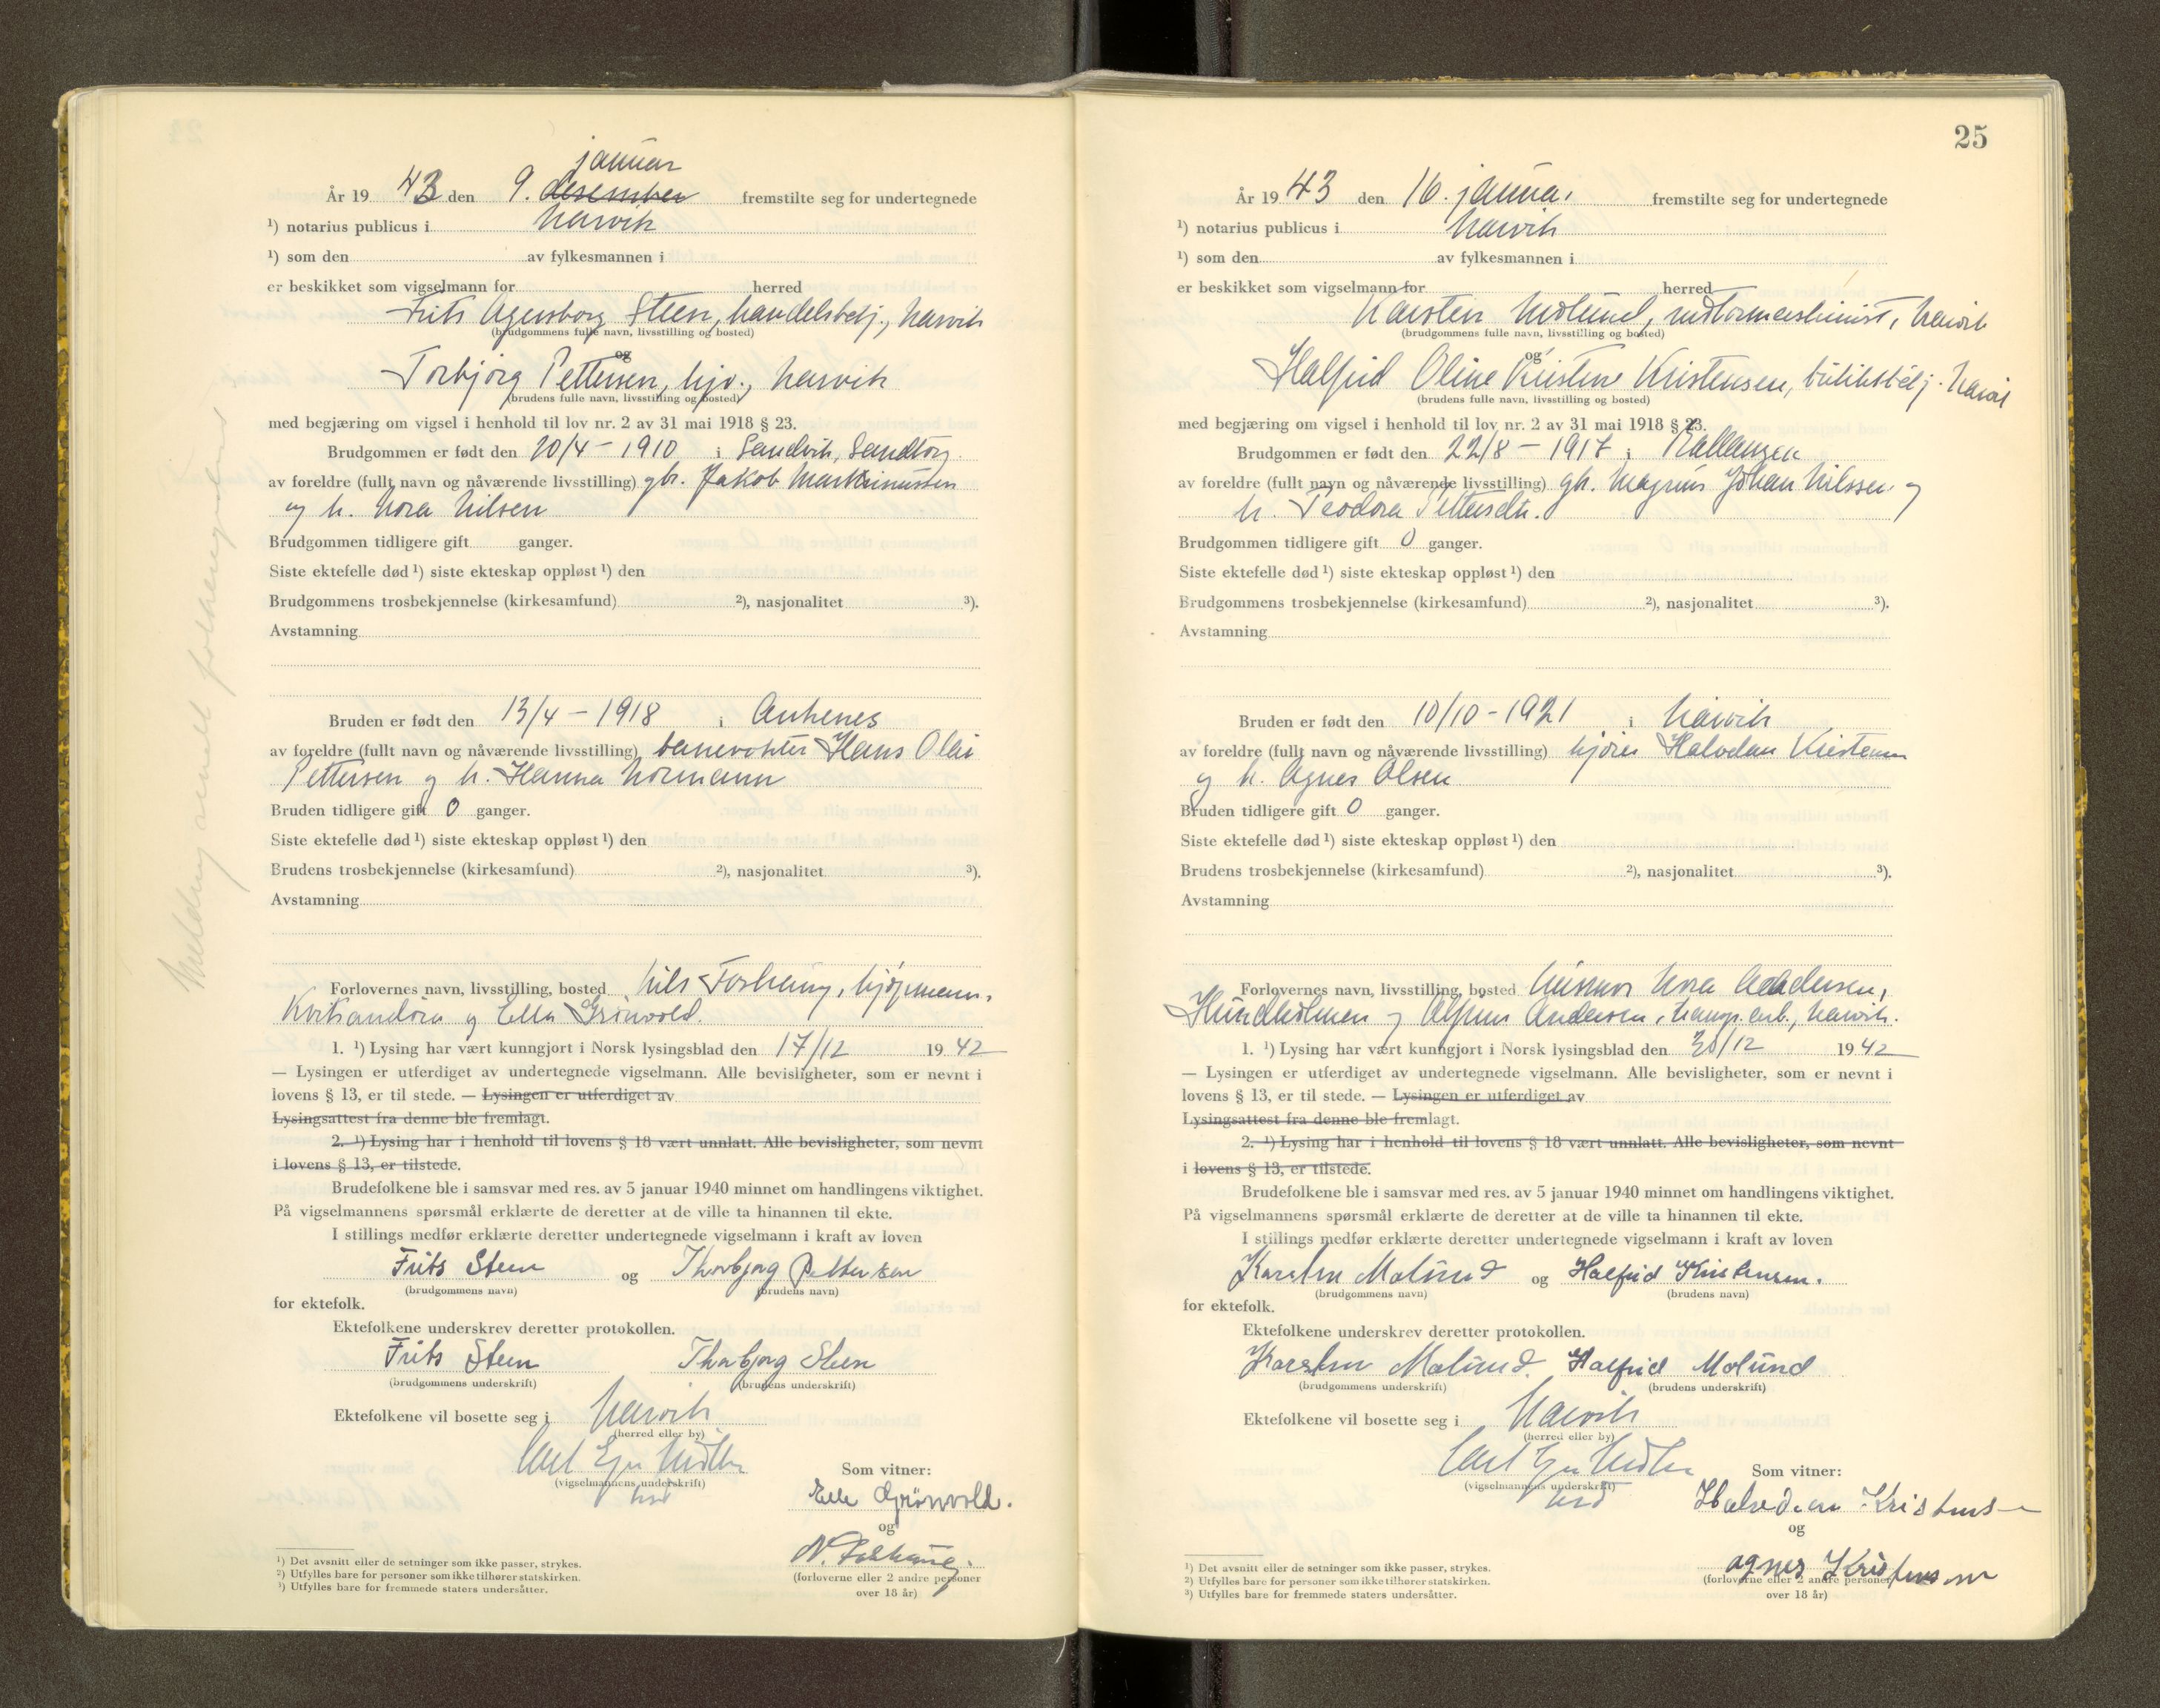 januar
År 19 43 den 9. desember fremstilte seg for undertegnede
¹) notarius publicus i Narvik
¹) som den av fylkesmannen i
er beskikket som vigselmann for herred
Frits Agersborg Steen, handelsbetj., Narvik
(brudgommens fulle navn, livsstilling og bosted)
og
Torbjørg Pettersen, hjv., Narvik
(brudens fulle navn, livsstilling og bosted)
med begjæring om vigsel i henhold til lov nr. 2 av 31 mai 1918 § 23.
Brudgommen er født den 20/4 - 1910 i Sandvik, Sandtorg
av foreldre (fullt navn og nåværende livsstilling) gbr. Jakob Martinussen
og h. Nora Nilsen
Brudgommen tidligere gift ganger.
Siste ektefelle død ¹) siste ekteskap oppløst ¹) den
Brudgommens trosbekjennelse (kirkesamfund) ²), nasjonalitet ³).
Avstamning
Bruden er født den 13/4 - 1918 i Ankenes
av foreldre (fullt navn og nåværende livsstilling) banevokter Hans Olai
Pettersen og h. Hanna Normann
Bruden tidligere gift 0 ganger.
Siste ektefelle død ¹) siste ekteskap oppløst ¹) den
Brudens trosbekjennelse (kirkesamfund) ²), nasjonalitet ³).
Avstamning
Forlovernes navn, livsstilling, bosted Nils
og Ella Grönvold.
1. ¹) Lysing har vært kunngjort i Norsk lysingsblad den 17/12 19 42
— Lysingen er utferdiget av undertegnede vigselmann. Alle bevisligheter, som er nevnt i
lovens § 13, er til stede. — Lysingen er utferdiget av
Lysingsattest fra denne ble fremlagt.
2. ¹) Lysing har i henhold til lovens § 18 vært unnlatt. Alle bevisligheter, som nevnt
i lovens § 13, er tilstede.
Brudefolkene ble i samsvar med res. av 5 januar 1940 minnet om handlingens viktighet.
På vigselmannens spørsmål erklærte de deretter at de ville ta hinannen til ekte.
I stillings medfør erklærte deretter undertegnede vigselmann i kraft av loven
Frits Steen og Thorbjørg Pettersen
(brudgommens navn) (brudens navn)
for ektefolk.
Ektefolkene underskrev deretter protokollen.
Frits Steen Thorbjørg Steen
(brudgommens underskrift) (brudens underskrift)
Ektefolkene vil bosette seg i Narvik
(herred eller by)
Carl
(vigselmannens underskrift)
Som vitner:
Ella Grönvold.
og
N.
(forloverne eller 2 andre personer
over 18 år)
¹) Det avsnitt eller de setninger som ikke passer, strykes.
²) Utfylles bare for personer som ikke tilhører statskirken.
³) Utfylles bare for fremmede staters undersåtter.
Melding sendt folkeregisteret
25
År 19 43 den 16. januar fremstilte seg for undertegnede
¹) notarius publicus i Narvik
¹) som den av fylkesmannen i
er beskikket som vigselmann for herred
Karsten Molund, Narvik
(brudgommens fulle navn, livsstilling og bosted)
og
Halfrid Oline Kristine Kristensen, butikkbetj. Narvik
(brudens fulle navn, livsstilling og bosted)
med begjæring om vigsel i henhold til lov nr. 2 av 31 mai 1918 § 23.
Brudgommen er født den 22/8 - 1917 i Ballangen
av foreldre (fullt navn og nåværende livsstilling) gb. Magnus Johan Nilssen og
h. Teodora Pettersdtr.
Brudgommen tidligere gift 0 ganger.
Siste ektefelle død ¹) siste ekteskap oppløst ¹) den
Brudgommens trosbekjennelse (kirkesamfund) ²), nasjonalitet ³).
Avstamning
Bruden er født den 10/10 - 1921 i Narvik
av foreldre (fullt navn og nåværende livsstilling) Halvdan Kristensen
og h. Agnes Olsen
Bruden tidligere gift 0 ganger.
Siste ektefelle død ¹) siste ekteskap oppløst ¹) den
Brudens trosbekjennelse (kirkesamfund) ²), nasjonalitet ³).
Avstamning
Forlovernes navn, livsstilling, bosted husmor Nora Andersen,
Hundholmen og Andersen, Narvik.
1. ¹) Lysing har vært kunngjort i Norsk lysingsblad den 30/12 19 42
— Lysingen er utferdiget av undertegnede vigselmann. Alle bevisligheter, som er nevnt i
lovens § 13, er til stede. — Lysingen er utferdiget av
Lysingsattest fra denne ble fremlagt.
2. ¹) Lysing har i henhold til lovens § 18 vært unnlatt. Alle bevisligheter, som nevnt
i lovens § 13, er tilstede.
Brudefolkene ble i samsvar med res. av 5 januar 1940 minnet om handlingens viktighet.
På vigselmannens spørsmål erklærte de deretter at de ville ta hinannen til ekte.
I stillings medfør erklærte deretter undertegnede vigselmann i kraft av loven
Karsten Molund og Halfrid Kristensen.
(brudgommens navn) (brudens navn)
for ektefolk.
Ektefolkene underskrev deretter protokollen.
Karsten Molund. Halfrid Molund
(brudgommens underskrift) (brudens underskrift)
Ektefolkene vil bosette seg i Narvik
(herred eller by)
Carl
(vigselmannens underskrift)
Som vitner:
Halvdan Kristensen
og
Agnes Kristensen
(forloverne eller 2 andre personer
over 18 år)
¹) Det avsnitt eller de setninger som ikke passer, strykes.
²) Utfylles bare for personer som ikke tilhører statskirken.
³) Utfylles bare for fremmede staters undersåtter.